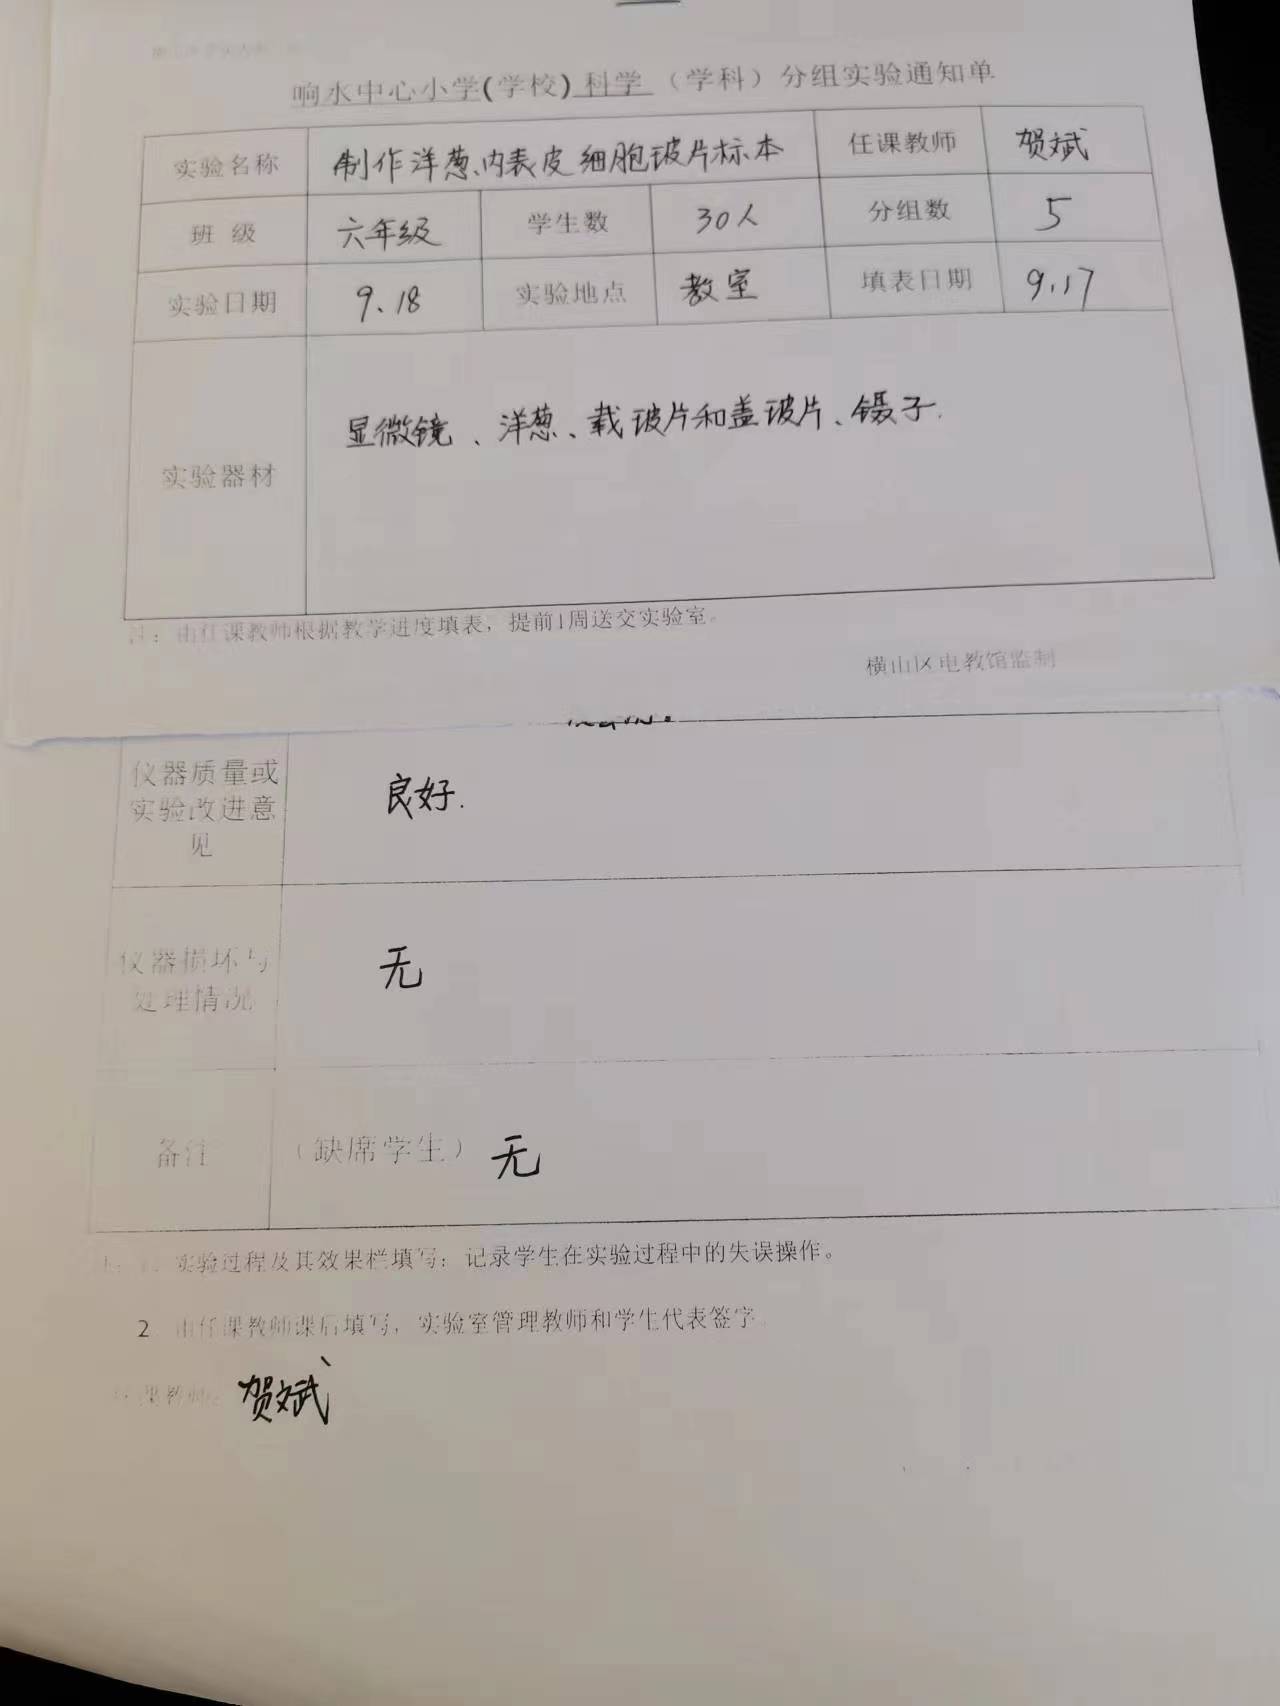 响水中心小学(学校) 科学 （学科）分组实验通知单
实验名称 制作洋葱内表皮细胞玻片标本 任课教师 贺斌
班 级 六年级 学生数 30人 分组数 5
实验日期 9.18 实验地点 教室 填表日期 9.17
实验器材 显微镜、洋葱、载玻片和盖玻片、镊子.
注：由任课教师根据教学进度填表，提前1周送交实验室。
横山区电教馆监制
仪器质量或
实验改进意
见
良好.
仪器损坏与
处理情况
无
备注 （缺席学生）无
实验过程及其效果栏填写：记录学生在实验过程中的失误操作。
2 由任课教师课后填写，实验室管理教师和学生代表签字
课教师： 贺斌